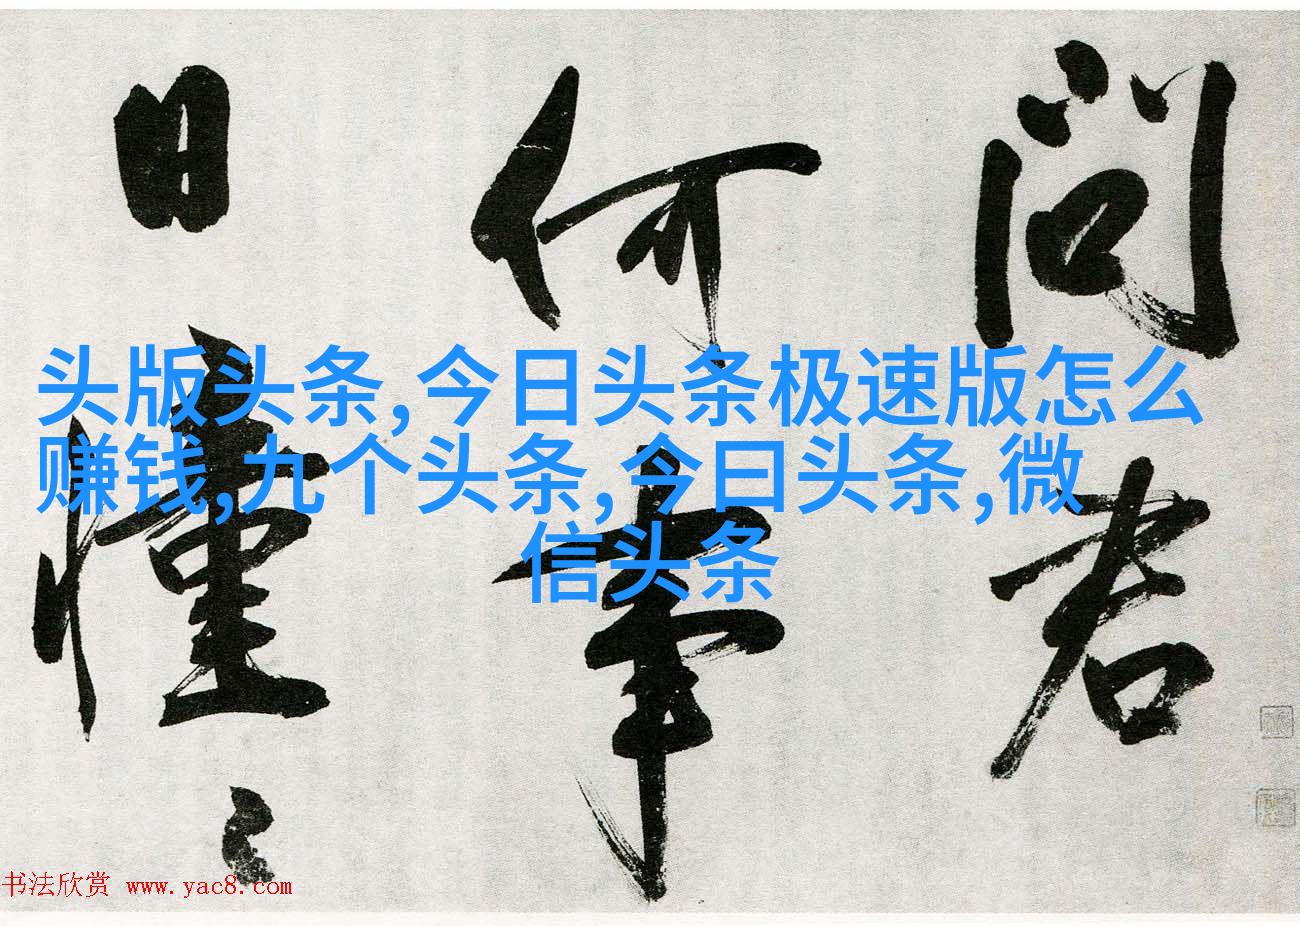 问君
何事
日憧〻
头版头条,今日头条极速版怎么
赚钱,九个头条,今曰头条,微
信头条
书法欣赏 www.yac8.com